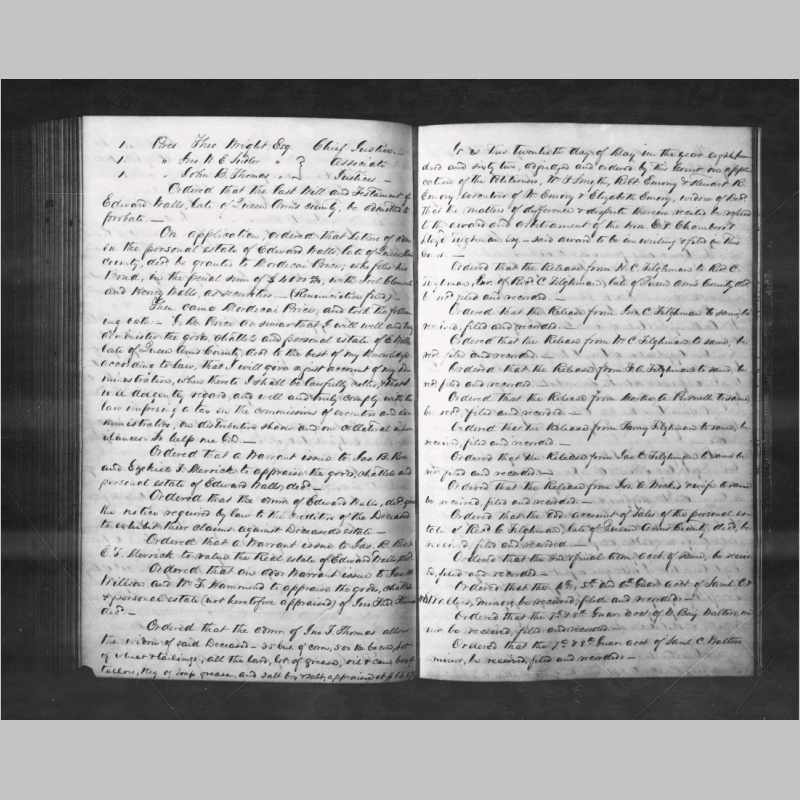 Pres Theo Wright Esq Chief Justice
" Jno W. E. Sudler " } Associate
" John B. Thomas " } Justices
Ordered that the last Will and Testament of
Edward Walls, late of Queen Ann's County, be admitted to
probate.
On application, ordered that letters of adm
on the personal estate of Edward Walls, late of Queen Anns
county, decd be granted to Mordecai Price, who files his
Bond, in the penal sum of $ with
and Henry Walls, as securities. (Renunciation filed)
Then came Mordecai Price, and took the follow
ing oath I, M. Price do swear that I will well and truly
administer the goods, chattels and personal estate of E Walls
late of Queen Anns County, decd to the best of my knowledge
according to law, that I will give a just account of my ad
ministration, when thereto I shall be lawfully called, & that I
will diligently regard, and well and truly comply with the
law imposing a tax on the commissions of executors and ad
ministrators, on distributive shares and on collateral inher
itances So help me God.
Ordered that a Warrant issue to Jas. B.
and Ezekiel T. Merrick to appraise the goods, chattels and
personal estate of Edward Walls, decd
Ordered that the admr of Edward Walls, decd give
the notice required by law to the creditors of the Deceased
to exhibit their claims against Deceaseds estate
Ordered that a Warrant issue to Jas. B.
E. T. Merrick to value the Real estate of Edward Walls decd
Ordered that an addl Warrant issue to Jas
William and Wm T. Hammond to appraise the goods, chattels
& personal estate (not heretofore appraised) of Jno T. Thomas
decd
Ordered that the admr of Jno T. Thomas allow
the widow of said Deceased 35 bus. of corn,
of wheat & tailings, all the lard, lot of grease,
tallow, Keg of soap grease, and salt box & salt, appraised at
It is this twentieth day of May in the year eighteen hun
dred and sixty two, adjudged and ordered by this Court on appli
cation of the Petitioners, W. F. Smyth, Robt Emory & Stewart R.
Emory Executors of W Emory & Elizabeth Emory, widow of decd
that the matters of difference & dispute therein stated be referred
to the award and arbitrament of the Hon. E. F. Chambers &
Lloyd Tilghman esq. said award to be in writing & filed in this
Court.
Ordered that the Release from H. C. Tilghman to Richd C.
Tilghman, Exr of Richd C Tilghman, late of Queen Anns County decd
be recd filed and recorded.
Ordered that the Release from Jno. C. Tilghman to same, be
received, filed and recorded.
Ordered that the Release from Wm C. Tilghman to same, be
recd filed and recorded.
Ordered that the Release from F. A. Tilghman to same, be
recd filed and recorded
Ordered that the Release from Purnell to same
be recd filed and recorded.
Ordered that the Release from Fanny Tilghman to same, be
received, filed and recorded.
Ordered that the Release from Jas C. Tilghman to same be
recd filed and recorded.
Ordered that the Release from Jno. C. & wife to same
be received, filed and recorded.
Ordered that the add account of Sales of the personal es
tate of Richd C Tilghman, late of Queen Anns County, decd, be
received, filed and recorded
Ordered that the 2nd & final admn acct of same, be receiv
ed, filed and recorded.
Ordered that the 4th, 5th and 6th Guar acct of Saml C.
Walters, minor, be received, filed and recorded.
Ordered that the 1st & 2nd Guar acct of B. Walters mi
nor be received, filed and recorded.
Ordered that the 7th & 8th Guar acct of Saml C. Walters
minor, be received, filed and recorded.